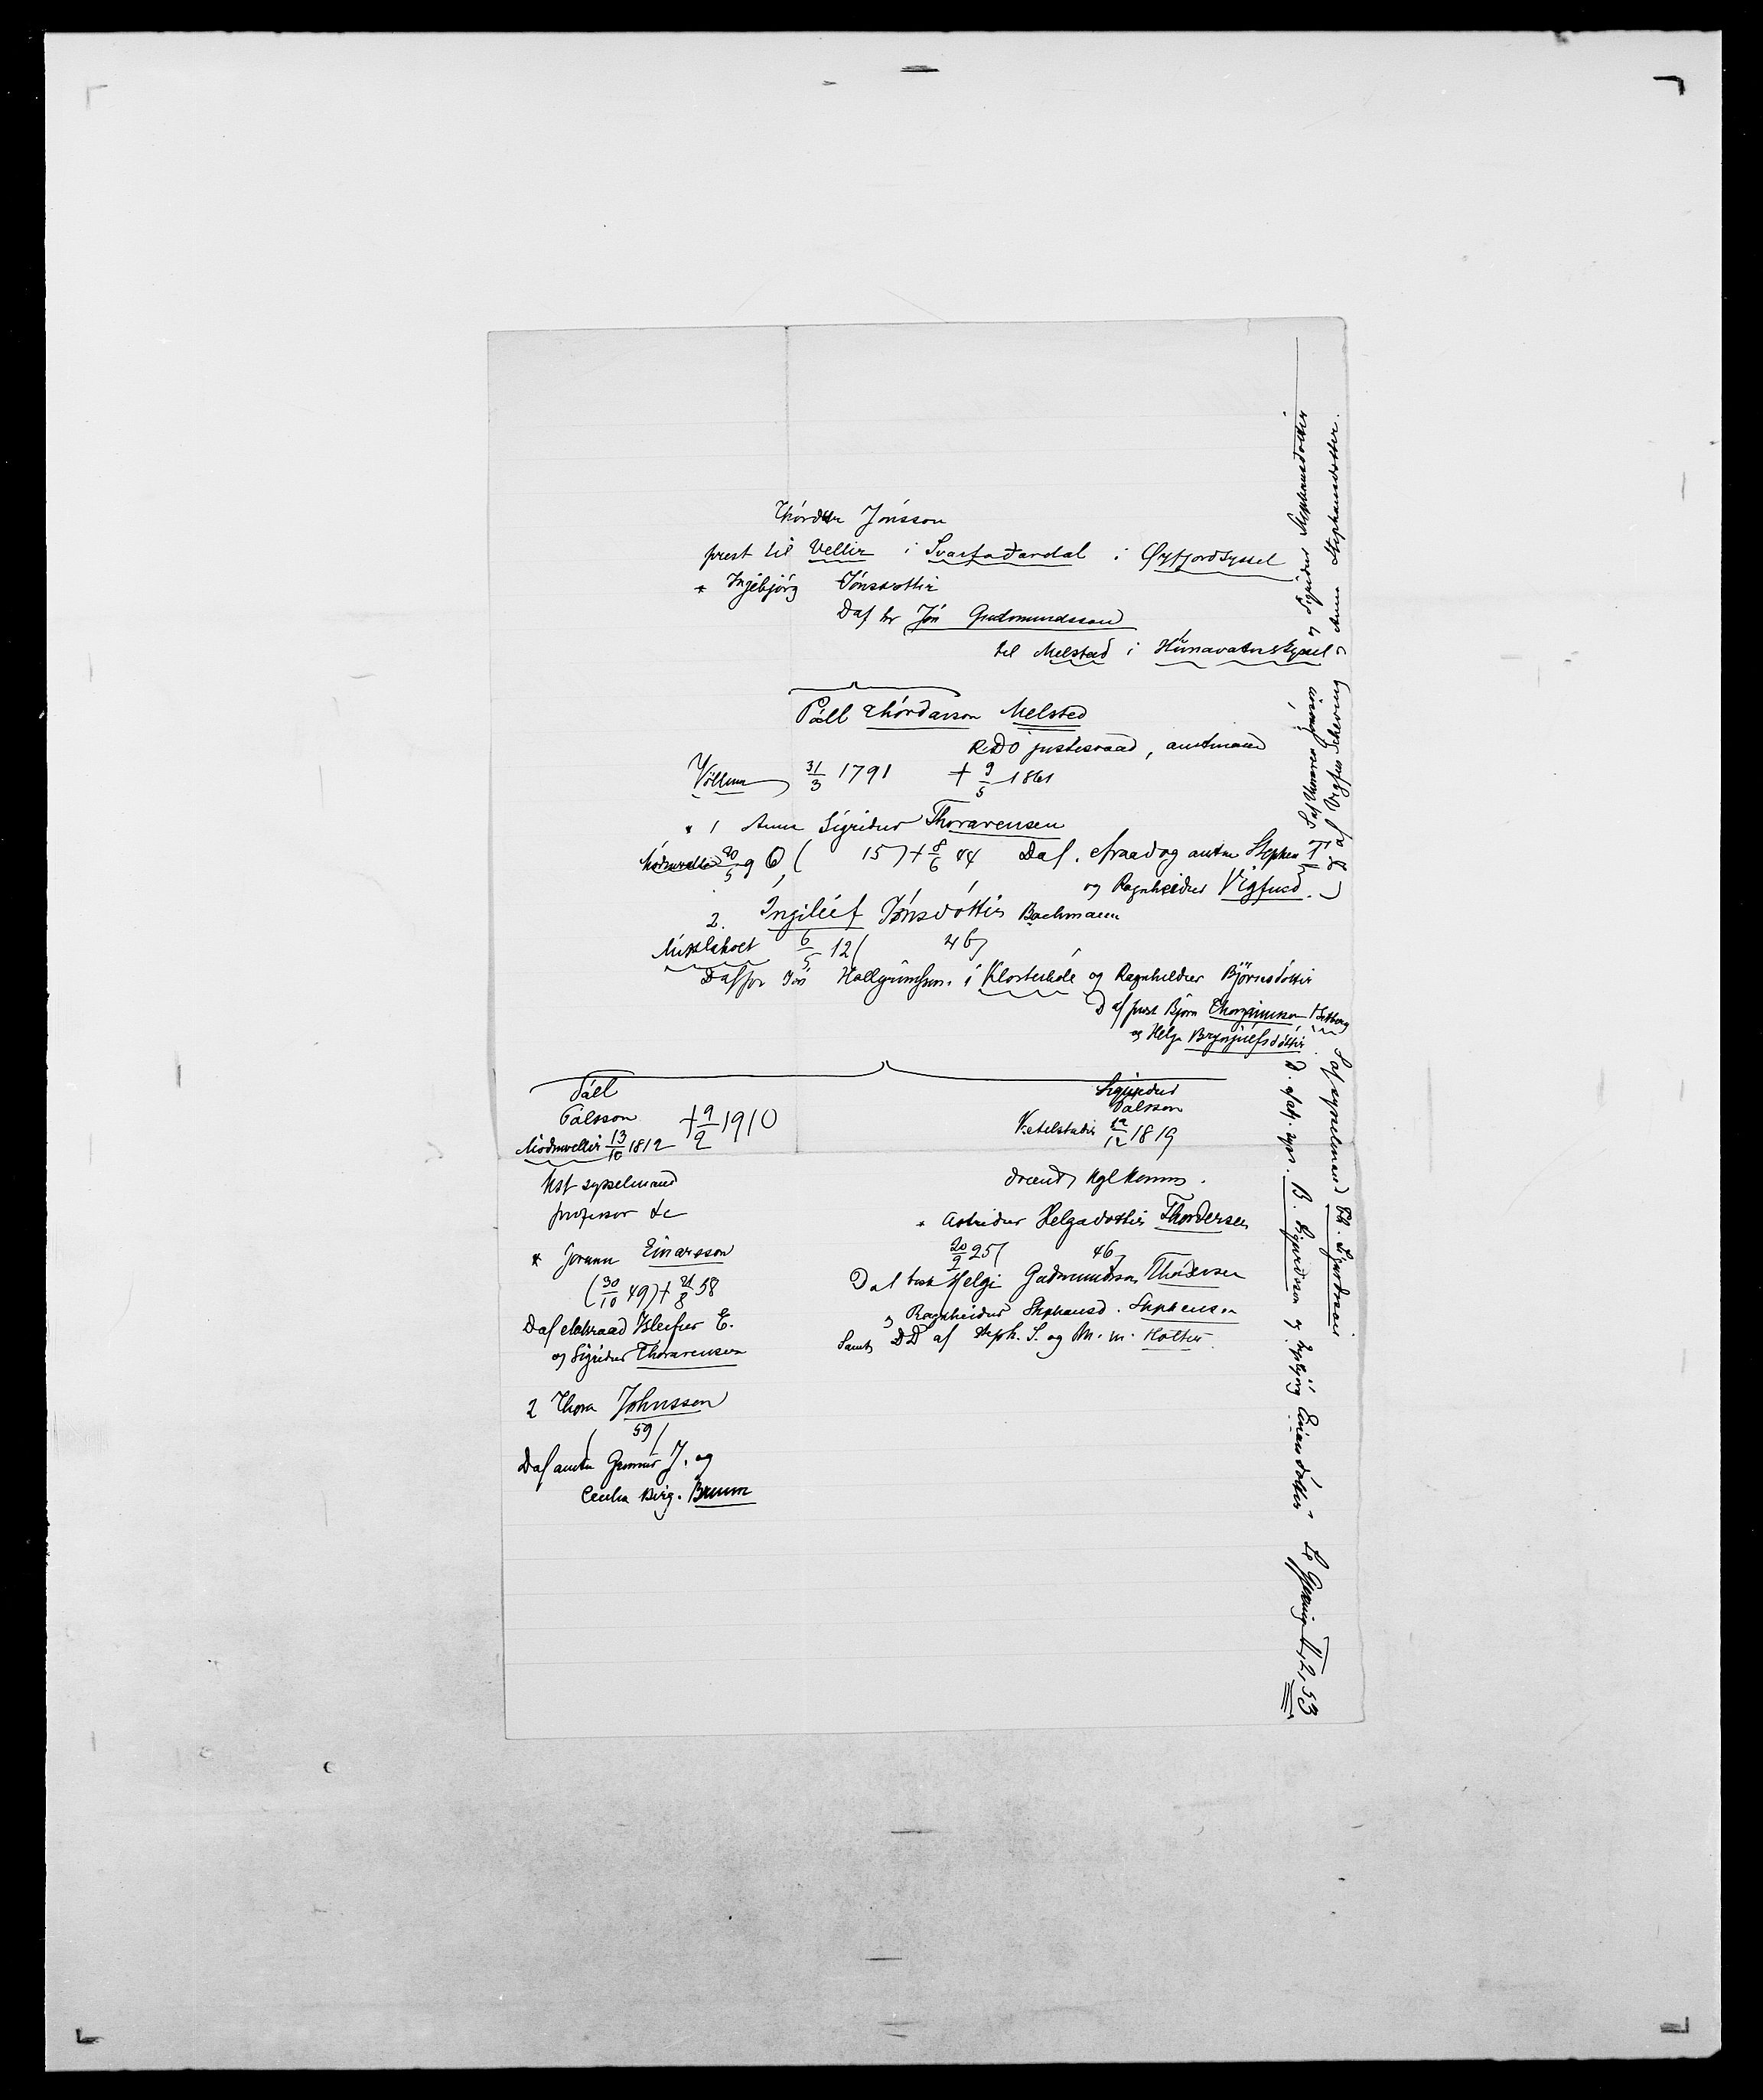 Thórdur Jónsson
prest til Vellir i Svarfaðardal i Øyfjordsyssel
* Ingibjörg Jónsdottir
D af hr Jón Gudmundsson
til Melstad i Húnavatnssyssel
Páll Thórdarson Melsted
RDO justisraad, amtmand
Völlum 31/3 1791 + 9/5 1861
* 1 Anna Sigridur Thorarensen
20/5 90, ( 15) + 8/6 44 D af. etsraad og amtm Stephen T
og Ragnheidur Vigfusd.
2. Ingileif Jónsdóttir Bachmann
6/5 12 ( 46)
D af pr Jón Hallgrimsson. i Klosterhole og Ragnheidur Björnsdóttir
D af prest Björn Thorgrimsson i Setberg
og Helga Brynjulfsdóttir
Páll
Pálsson + 9/2 1910
Modruvellir 13/10 1812
kst sysselmand
professor &c
* Jorunn Einarsson
(30/10 49) + 21/8 58
D af etatsraad Isleifur E.
og Sigridur Thorarensen
2 Thora Johnsson
( 59)
D af amtm Grimur J. og
Cecilia Birg. Bruun
Sigurdur
Pálsson
Ketelstadir 12/12 1819
* Astridur Helgadottir Thordersen
20/2 25 ( 46)
D af bisk Helgi Gudmundson Thordersen
og Ragnheidur Stephansd. Stephensen
Samt DD af Steph. S. og M. m. Holter.
S af Thorarin Jonsson og Sigridur Stephansdotter
D af Vigfus Scheving og Anna Stephansdotter.
S af sysselmand Th. Sigurdsson
B. Sigurdsson og Ingibjörg Einarsdóttir